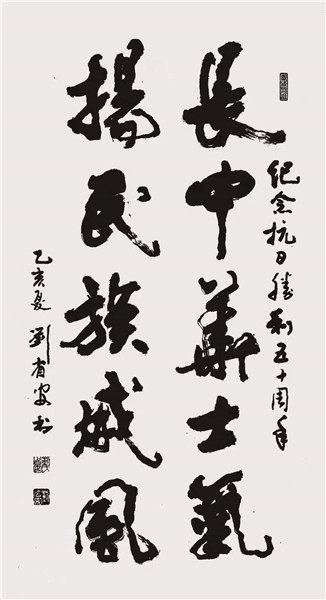 紀念抗日勝利五十周年
長中華士氣
揚民族威風
乙亥夏 劉有安书